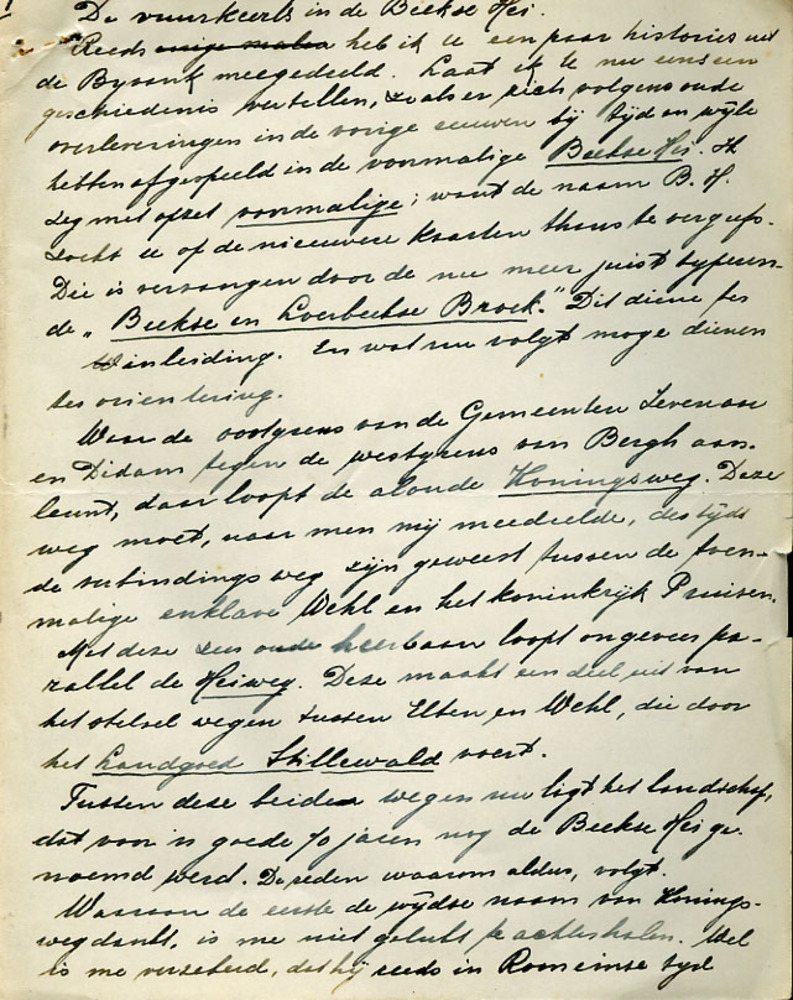 De vuurkeerls in de Beekse Hei.
Reeds enige malen heb ik U een paar histories uit
de Byvank meegedeeld. Laat ik U nu eens een
geschiedenis vertellen, zoals er zich volgens oude
overleveringen in de vorige eeuwen bij tijd en wijle
hebben afgespeeld in de voormalige Beekse Hei. Ik
zeg met opzet voormalige; want de naam B. H.
zoekt U op de nieuwere kaarten thans te vergeefs.
Die is vervangen door de nu meer juist typeren-
de "Beekse en Loerbeekse Broek." Dit diene ter
inleiding. En wat nu volgt moge dienen
ter oriëntering.
Waar de oostgrens van de Gemeenten Zevenaar
en Didam tegen de westgrens van Bergh aan-
leunt, daar loopt de aloude Koningsweg. Deze
weg moet, naar men mij meedeelde, destijds
de verbindingsweg zijn geweest tussen de toen-
malige enklave Wehl en het koninkrijk Pruisen.
Met deze zeer oude heerbaan loopt ongeveer pa-
rallel de Heiweg. Deze maakt een deel uit van
het stelsel wegen tussen Elten en Wehl, die door
het Landgoed Stillewald voert.
Tussen deze beide wegen nu ligt het landschap,
dat voor 'n goede 70 jaren nog de Beekse Hei ge-
noemd werd. De reden waarom aldus, volgt.
Waaraan de eerste de wijdse naam van Konings-
weg dankt, is me niet gelukt te achterhalen. Wel
is me verzekerd, dat hij reeds in Romeinse tijd